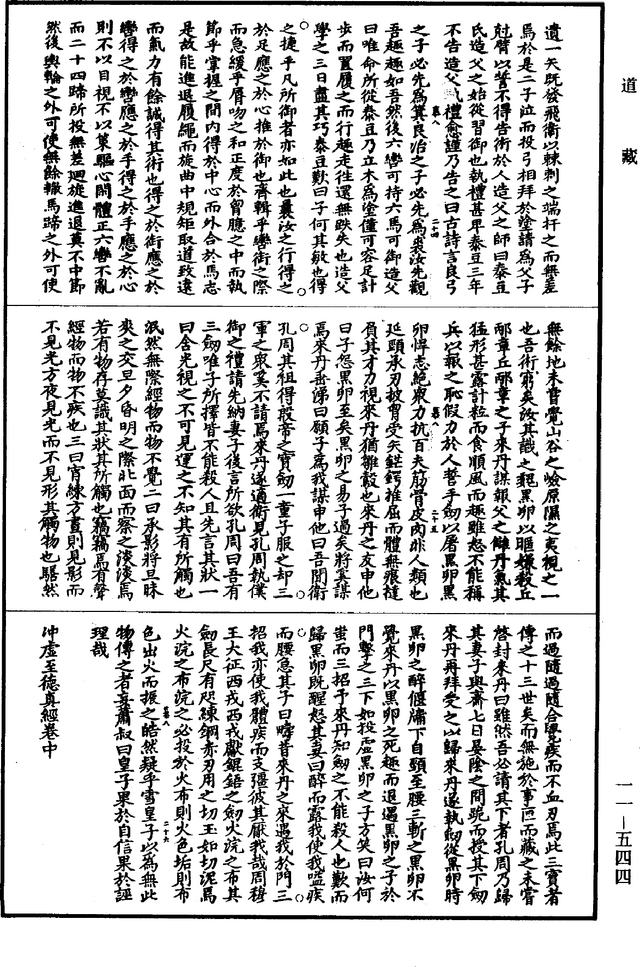 道藏
遺一矢既發飛衛以棘刺之端扞之而無差
焉於是二子泣而投弓相拜於塗請為父子
尅臂以誓不得告術於人造父之師曰泰豆
氏造父之始從習御也執禮甚卑泰豆三年
不告造父禮愈謹乃告之曰古詩言良弓
二十四
之子必先為箕良冶之子必先為裘汝先觀
吾趣趣如吾然後六轡可持六馬可御造父
曰唯命所從泰豆乃立木為塗僅可容足計
步而置履之而行趣走往還無跌失也造父
學之三日盡其巧泰豆歎曰子何其敏也得
之捷乎凡所御者亦如此也曩汝之行得之
於足應之於心推於御也齊輯乎轡銜之際
而急緩乎脣吻之和正度於胷臆之中而執
節乎掌握之間內得於中心而外合於馬志
是故能進退履繩而旋曲中規矩取道致遠
而氣力有餘誠得其術也得之於銜應之於
轡得之於轡應之於手得之於手應之於心
則不以目視不以策驅心閑體正六轡不亂
而二十四蹄所投無差迴旋進退莫不中節
然後輿輪之外可使無餘轍馬蹄之外可使
無餘地未嘗覺山谷之嶮原隰之夷視之一
也吾術窮矣汝其識之魏黑卵以暱嫌殺丘
邴章丘邴章之子來丹謀報父之讎丹氣甚
猛形甚露計粒而食順風而趨雖怒不能稱
兵以報之恥假力於人誓手劒以屠黑卵黑
二十五
卵悍志絕衆力抗百夫筋骨皮肉非人類也
延頸承刃披胷受矢鋩鍔摧屈而體無痕撻
負其才力視來丹猶雛鷇也來丹之友申他
曰子怨黑卵至矣黑卵之易子過矣將奚謀
焉來丹垂涕曰願子為我謀申他曰吾聞衛
孔周其祖得殷帝之寶劒一童子服之却三
軍之衆奚不請焉來丹遂適衛見孔周執僕
御之禮請先納妻子後言所欲孔周曰吾有
三劒唯子所擇皆不能殺人且先言其狀一
曰含光視之不可見運之不知其有所觸也
泯然無際經物而物不覺二曰承影將旦昧
爽之交旦夕昏明之際北面而察之淡淡焉
若有物存莫識其狀其所觸也竊竊焉有聲
經物而物不疾也三曰宵練方晝則見影而
不見光方夜見光而不見形其觸物也騞然
而過隨過隨合覺疾而不血刃焉此三寶者
傳之十三世矣而無施於事匣而藏之未嘗
啓封來丹曰雖然吾必請其下者孔周乃歸
其妻子與齋七日晏陰之間跪而授其下劒
來丹再拜受之以歸來丹遂執劒從黑卵時
黑卵之醉偃牖下自頸至腰三斬之黑卵不
覺來丹以黑卵之死趣而退遇黑卵之子於
門擊之三下如投虛黑卵之子方笑曰汝何
蚩而三招予來丹知劒之不能殺人也歎而
歸黑卵既醒怒其妻曰醉而露我使我嗌疾
而腰急其子曰疇昔來丹之來遇我於門三
招我亦使我體疾而支彊彼其厭我哉周穆
王大征西戎西戎獻錕鋙之劒火浣之布其
劒長尺有咫練鋼赤刃用之切玉如切泥焉
火浣之布浣之必投於火布則火色垢則布
二十六
色出火而振之皓然疑乎雪皇子以為無此
物傳之者妄蕭叔曰皇子果於自信果於誣
理哉
沖虛至德真經卷中
一一-五四四